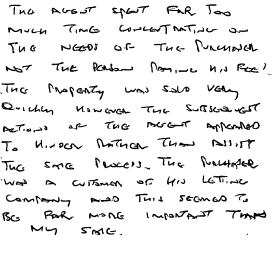 THE AGENT SPENT FAR TOO
MUCH TIME CONCENTRATING ON
THE NEEDS OF THE PURCHASER
NOT THE PERSON PAYING HIS FEES!
THE PROPERTY WAS SOLD VERY
QUICKLY HOWEVER THE SUBSEQUENT
ACTIONS OF THE AGENT APPEARED
TO HINDER RATHER THAN ASSIST
THE SALE PROCESS. THE PURCHASER
WAS A CUSTOMER OF HIS LETTING
COMPANY AND THIS SEEMED TO
BE FAR MORE IMPORTANT THAN
MY SALE.